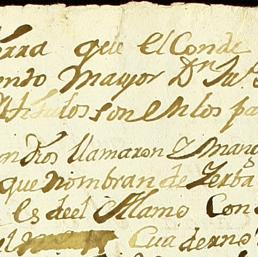 rra que el Conde
endo mayor Dn Ju
titulos son en los pa
n Dios llamaron y man
que nombran de Yerba
es de el Alamo con
el Cuaderno